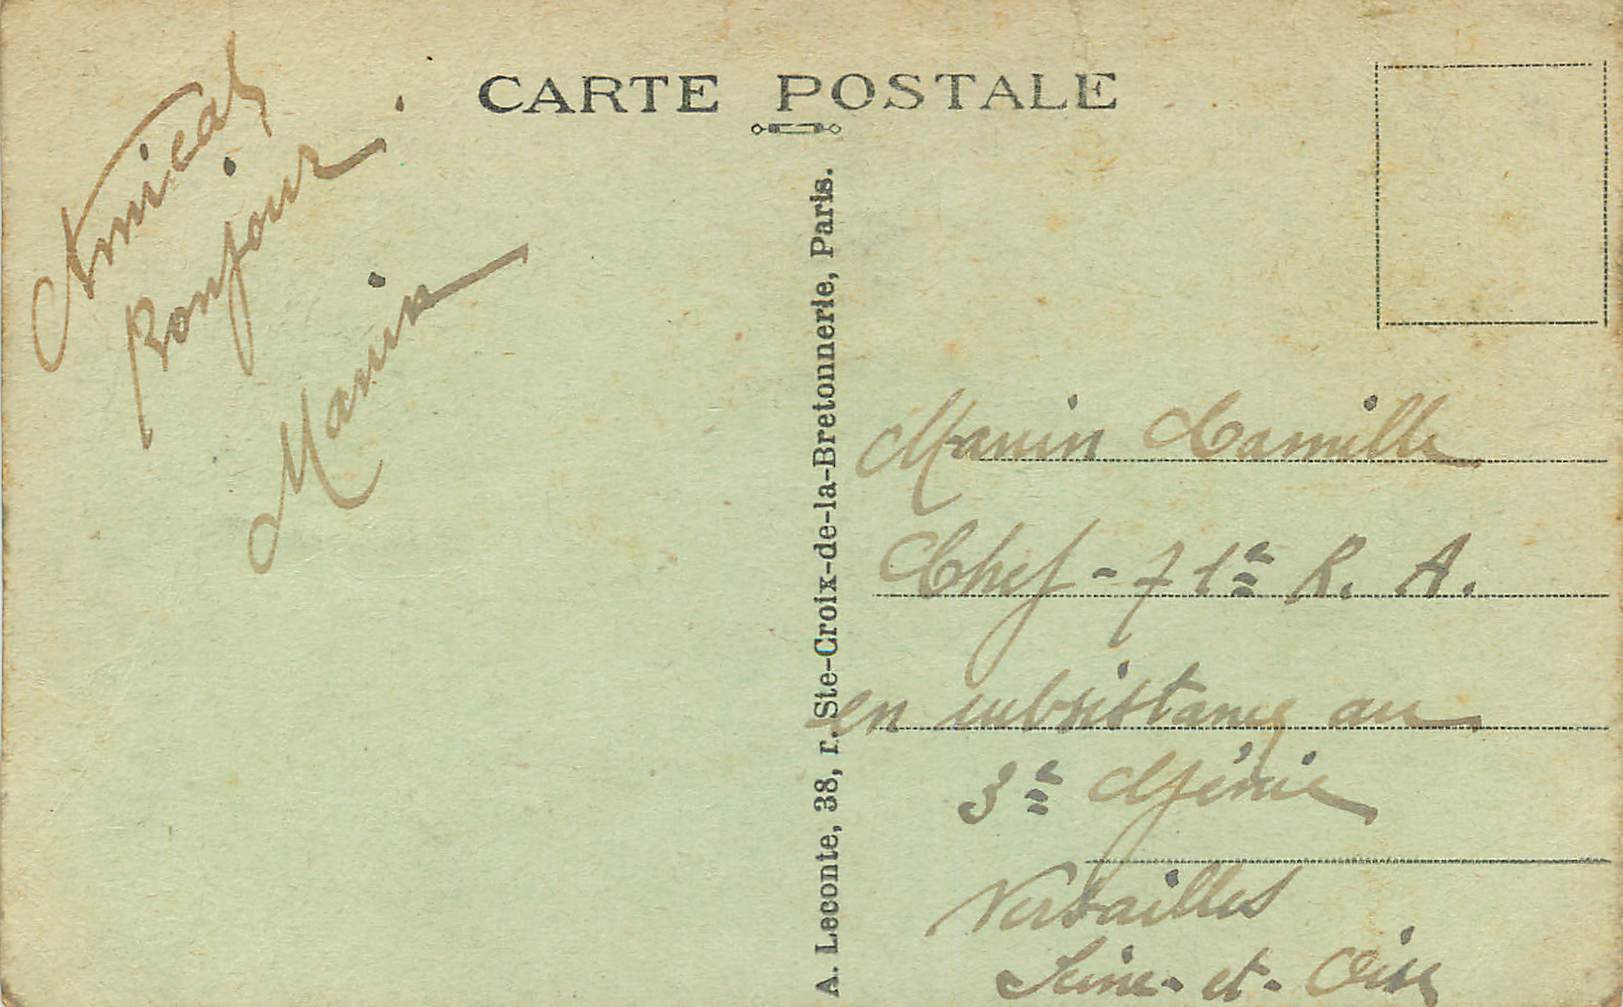 CARTE POSTALE
Amical
Bonjour
Manin
A. Leconte, 38, r. Ste-Croix-de-la-Bretonnerie, Paris.
Manin Camille
Chef - 71e R. A.
en subsistance au
3e Génie
Versailles
Seine-et-Oise